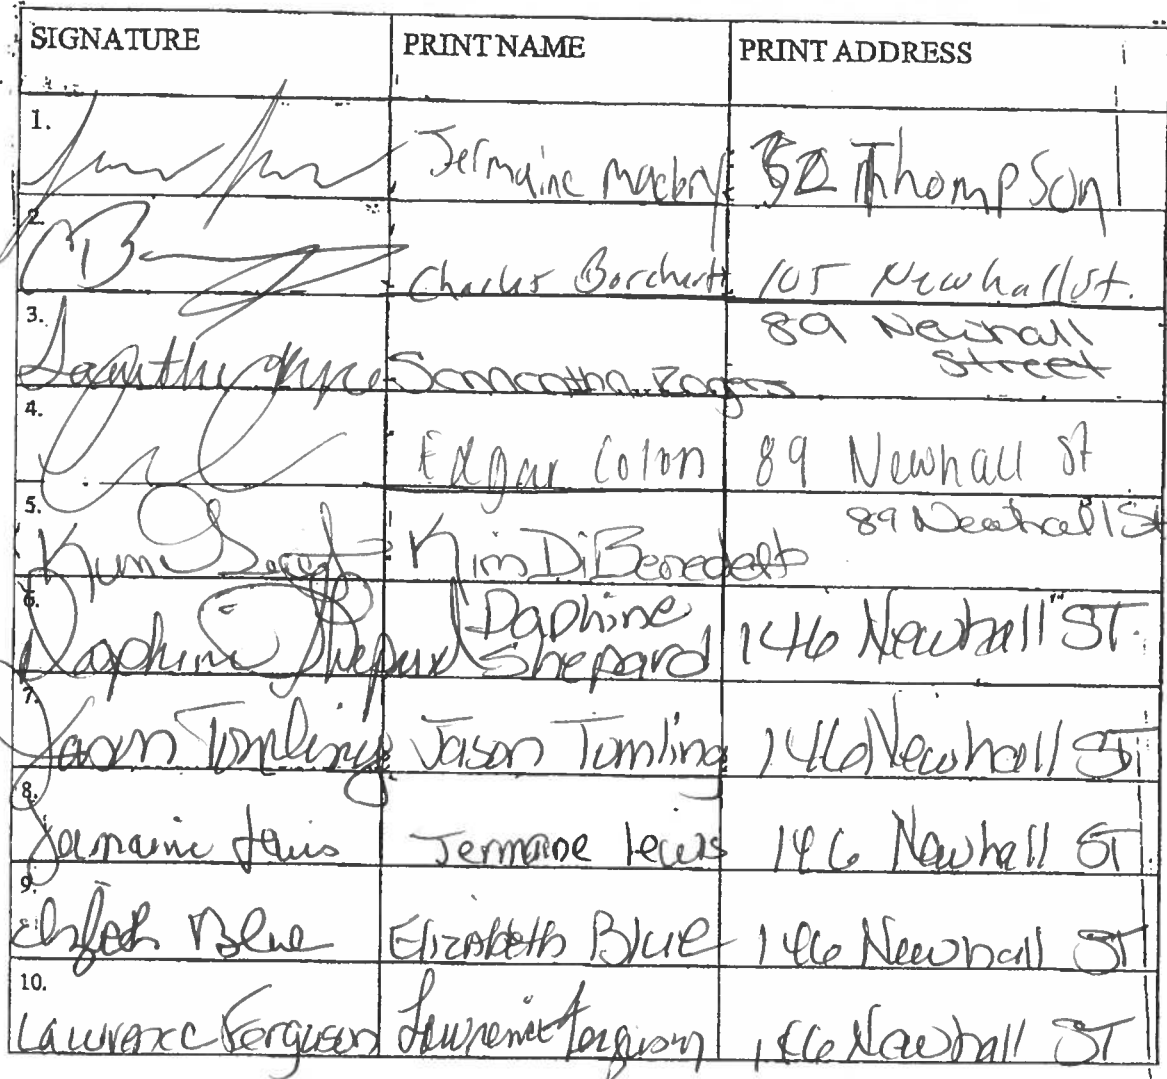 SIGNATURE PRINT NAME PRINT ADDRESS
1. Jermaine 52 Thompson
2. Charles Borchert 105 Newhall st.
3. Samantha Rogers 89 Newhall
Street
4. Edgar Colon 89 Newhall St
5. Kim Kim DiBenedett 89 Newhall St
6. Daphine Shepard Daphine
Shepard 146 Newhall ST.
7. Jason Tomling Jason Tomling 146 Newhall ST
8. Jermaine Lewis Jermaine lewis 146 Newhall ST
9. Elizabeth Blue Elizabeth Blue 146 Newhall ST
10. Lawrence Ferguson Lawrence Ferguson 146 Newhall ST